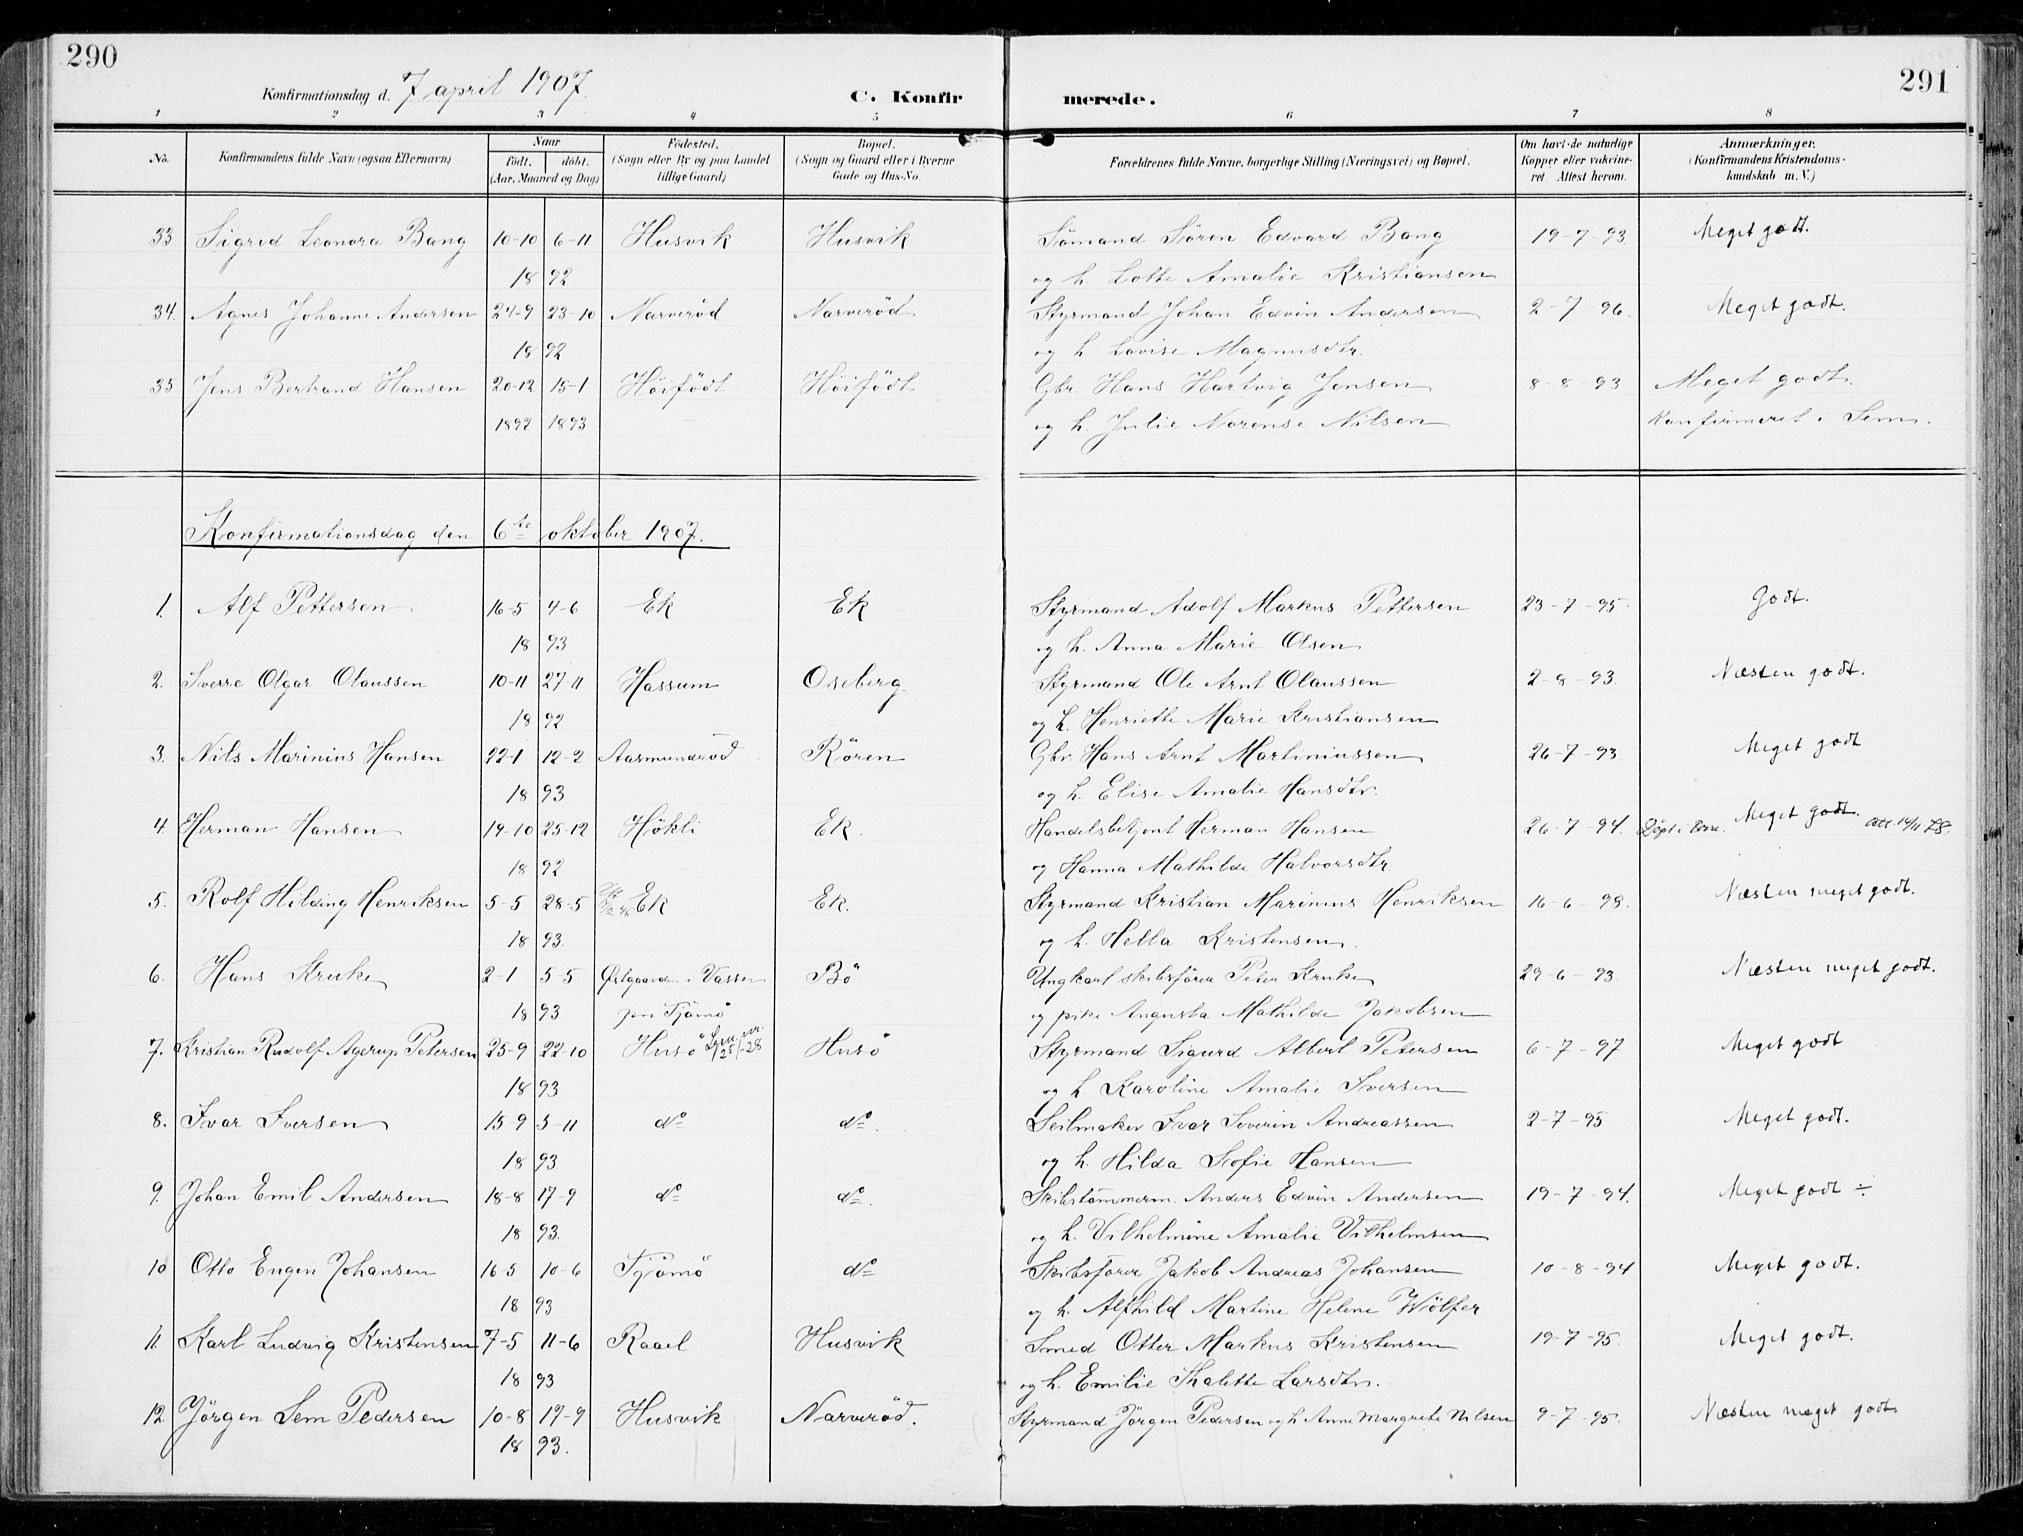 290
291
Konfirmationsdag d. 7 april 1907.
C. Konfirmerede.
1 2 3 4 5 6 7 8
No. Konfirmandens fulde Navn (ogsaa Efternavn) Naar født. døbt. (Aar, Maaned og Dag) Fødested. (Sogn eller By og paa Landet tillige Gaard) Bopæl. (Sogn og Gaard eller i Byerne Gade og Hus-No. Forældrenes fulde Navne, borgerlige Stilling (Næringsvei) og Bopæl. Om havt de naturlige Kopper eller vakcineret Attest herom. Anmærkninger. (Konfirmandens Kristendomskundskab m. V.)
33 Sigrid Leonora Bang 10-10 6-11 Husvik Husvik Sömand Sören Edvard Bang 19-7-93 Meget godt.
18 92 og h. Lotte Amalie Kristiansen
34. Agnes Johanne Andersen 24-9 23-10 Narveröd Narveröd Styrmand Johan Edvin Andersen 2-7-96. Meget godt.
18 92 og h. Lovise Magnusdtr.
35 Jens Bertrand Hansen 20-12 15-1 Höifödt Höifödt Gbr. Hans Hartvig Jensen 8-8-93 Meget godt.
1892 1893 og h. Julie Norense Nilsen Konfirmeret i Sem.
Konfirmationsdag den 6te oktober 1907.
1. Alf Pettersen 16-5 4-6 Ek Ek Styrmand Adolf Markus Pettersen 23-7-95. Godt.
18 93 og h. Anna Marie Olsen
2. Sverre Olgar Olaussen 10-11 27-11 Hassum Oseberg Styrmand Ole Arnt Olaussen 2-8-93. Næsten godt.
18 92 og h. Henriette Marie Kristiansen
3. Nils Marinius Hansen 22-1 12-2 Aasmundröd Rören Gbr. Hans Arnt Martiniussen 26-7-93 Meget godt
18 93 og h. Elise Amalie Hansdtr.
4. Herman Hansen 19-10 25-12 Hökli Ek. Handelsbetjent Herman Hansen 26-7-94. Döpt i Meget godt. Att. 14/11-78.
18 92 og Hanna Mathilde Halvorsdtr.
5. Rolf Hilding Henriksen 5-5 28-5 Ek Ek. Styrmand Kristian Marinius Henriksen 16-6-98. Næsten meget godt.
18 93. og h. Hella Kristensen.
6. Hans Kruke 2-1 5-5 Østgaarden i Vassen Bö Ungkarl skibsförer Peter Kruke 29-6-93 Næsten meget godt.
18 93 Tjömö og pike Augusta Mathilde Jakobsen
7. Kristian Rudolf Agerup Petersen 25-9 22-10 Husö Husö Styrmand Sigurd Albert Petersen 6-7-97 Meget godt
18 93 og h Karoline Amalie Iversen
8. Ivar Iversen 15-9 5-11 do do. Seilmaker Ivar Severin Andreassen 2-7-95 Meget godt.
18 93 og h. Hilda Sofie Hansen
9. Johan Emil Andersen 18-8 17-9 do do. Skibstömmerm. Anders Edvin Andersen 19-7-94. Meget godt ÷
18 93. og h. Vilhelmine Amalie Vilhelmsen
10 Otto Eugen Johansen 16-5 10-6 Tjömö do Skibsförer Jakob Andreas Johansen 10-8-94 Meget godt.
18 93 og h. Alfhild Martine Helene Wölfer
11. Karl Ludvig Kristensen 7-5 11-6 Raael Husvik Smed Otter Markus Kristensen 19-7-95. Meget godt.
18 93 og h. Emilie Thalette Larsdtr.
12. Jörgen Sem Pedersen 10-8 17-9 Husvik Narveröd. Styrmand Jörgen Pedersen og h Anne Margrete Nilsen 9-7-95. Næsten meget godt.
18 93.